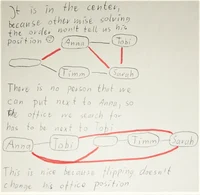 It is in the center,
because other wise solving
the order, won't tell us his
position ☺
Anna Tobi
Timm Sarah
There is no person that we
can put next to Anna, so
the office we each for
has to be next to Tobi
Anna Tobi Timm Sarah
This is nice because flipping doesn't
change his office position